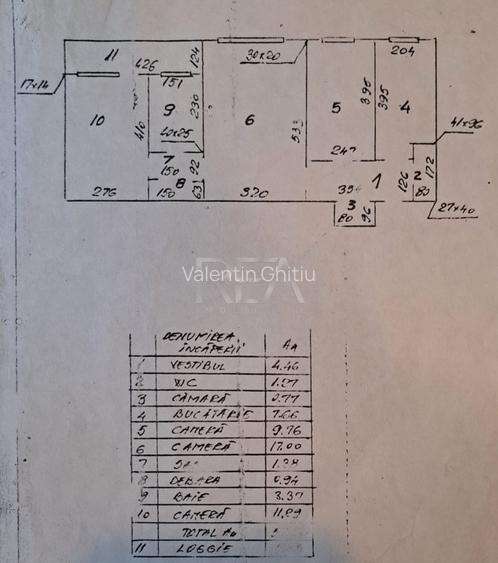 11
204
30x20
426
124
17x14
151
10
9
230
6
5
395
395
4
41x96
416
40x25
533
247
7
92
150
8
1
2
172
276
150
63
320
354
126
80
3
27x40
80
96
Valentin Ghitiu
REA
DENUMIREA ÎNCĂPERII
Aa
1 VESTIBUL 4.46
2 WC
3 CĂMARĂ 0.77
4 BUCĂTĂRIE 7.66
5 CAMERĂ 9.76
6 CAMERĂ 17.00
7
8 DEBARA 0.94
9 BAIE 3.37
10 CAMERĂ 11.89
TOTAL Aa
11 LOGGIE